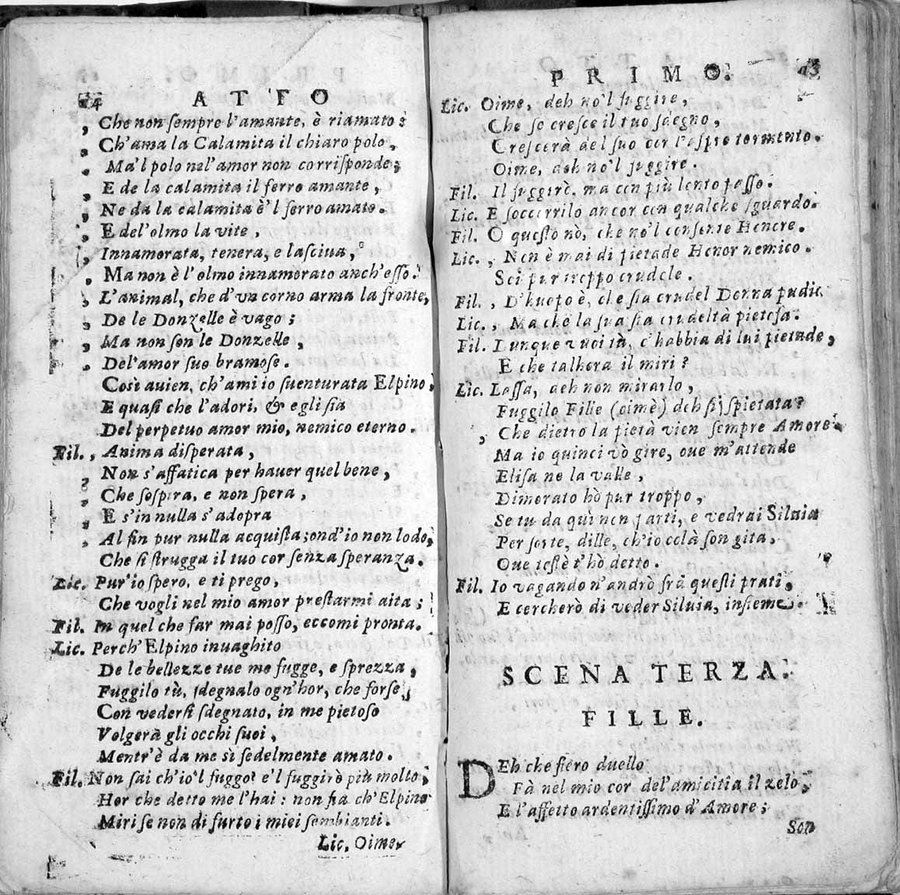 24 ATTO
, Che non sempre l'amante, è riamato:
, Ch'ama la Calamita il chiaro polo,
, Ma'l polo nel'amor non corrisponde;
, E de la calamita il ferro amante,
, Ne da la calamita è'l ferro amato.
, E del'olmo la vite,
, Innamorata, tenera, e lasciua,
, Ma non è l'olmo innamorato anch'esso.
, L'animal, che d'vn corno arma la fronte,
, De le Donzelle è vago;
, Ma non son le Donzelle,
, Del'amor suo bramose.
Così auien, ch'ami io suenturata Elpino,
E quasi che l'adori, & egli sia
Del perpetuo amor mio, nemico eterno.
Fil. , Anima disperata,
, Non s'affatica per hauer quel bene,
, Che sospira, e non spera,
, E s'in nulla s'adopra
, Al fin pur nulla acquista; ond'io non lodo,
Che si strugga il tuo cor senza speranza.
Lic. Pur'io spero, e ti prego,
Che vogli nel mio amor prestarmi aita;
Fil. In quel che far mai posso, eccomi pronta.
Lic. Perch'Elpino inuaghito
De le bellezze tue me fugge, e sprezza,
Fuggilo tù, sdegnalo ogn'hor, che forse,
Con vedersi sdegnato, in me pietoso
Volgerà gli occhi suoi,
Mentr'è da me sì fedelmente amato.
Fil. Non sai ch'io'l fuggo? e'l fuggirò più molto,
Hor che detto me l'hai: non fia ch'Elpino
Miri se non di furto i miei sembianti.
Lic. Oime,
PRIMO. 25
Lic. Oime, deh no'l fuggire,
Che se cresce il tuo sdegno,
Crescerà del suo cor l'aspro tormento.
Oime, deh no'l fuggire.
Fil. Il fuggirò, ma con più lento passo.
Lic. E soccorrilo ancor con qualche sguardo.
Fil. O questo nò, che no'l consente Honore.
Lic. , Non è mai di pietade Honor nemico.
Sei pur troppo crudele.
Fil. , D'huopo è, che sia crudel Donna pudic
Lic. , Ma che la sua sia crudeltà pietosa.
Fil. Dunque vuoi tù, c'habbia di lui pietade,
E che talhora il miri?
Lic. Lassa, deh non mirarlo,
Fuggilo Fille (oimè) deh sì spietata?
, Che dietro la pietà vien sempre Amore.
Ma io quinci vò gire, oue m'attende
Elisa ne la valle,
Dimorato hò pur troppo,
Se tu da quì non parti, e vedrai Siluia
Per sorte, dille, ch'io colà son gita,
Oue testè t'hò detto.
Fil. Io vagando n'andrò frà questi prati,
E cercherò di veder Siluia, insieme.
SCENA TERZA.
FILLE.
DEh che fiero duello
Fà nel mio cor del'amicitia il zelo,
E l'affetto ardentissimo d'Amore;
Son